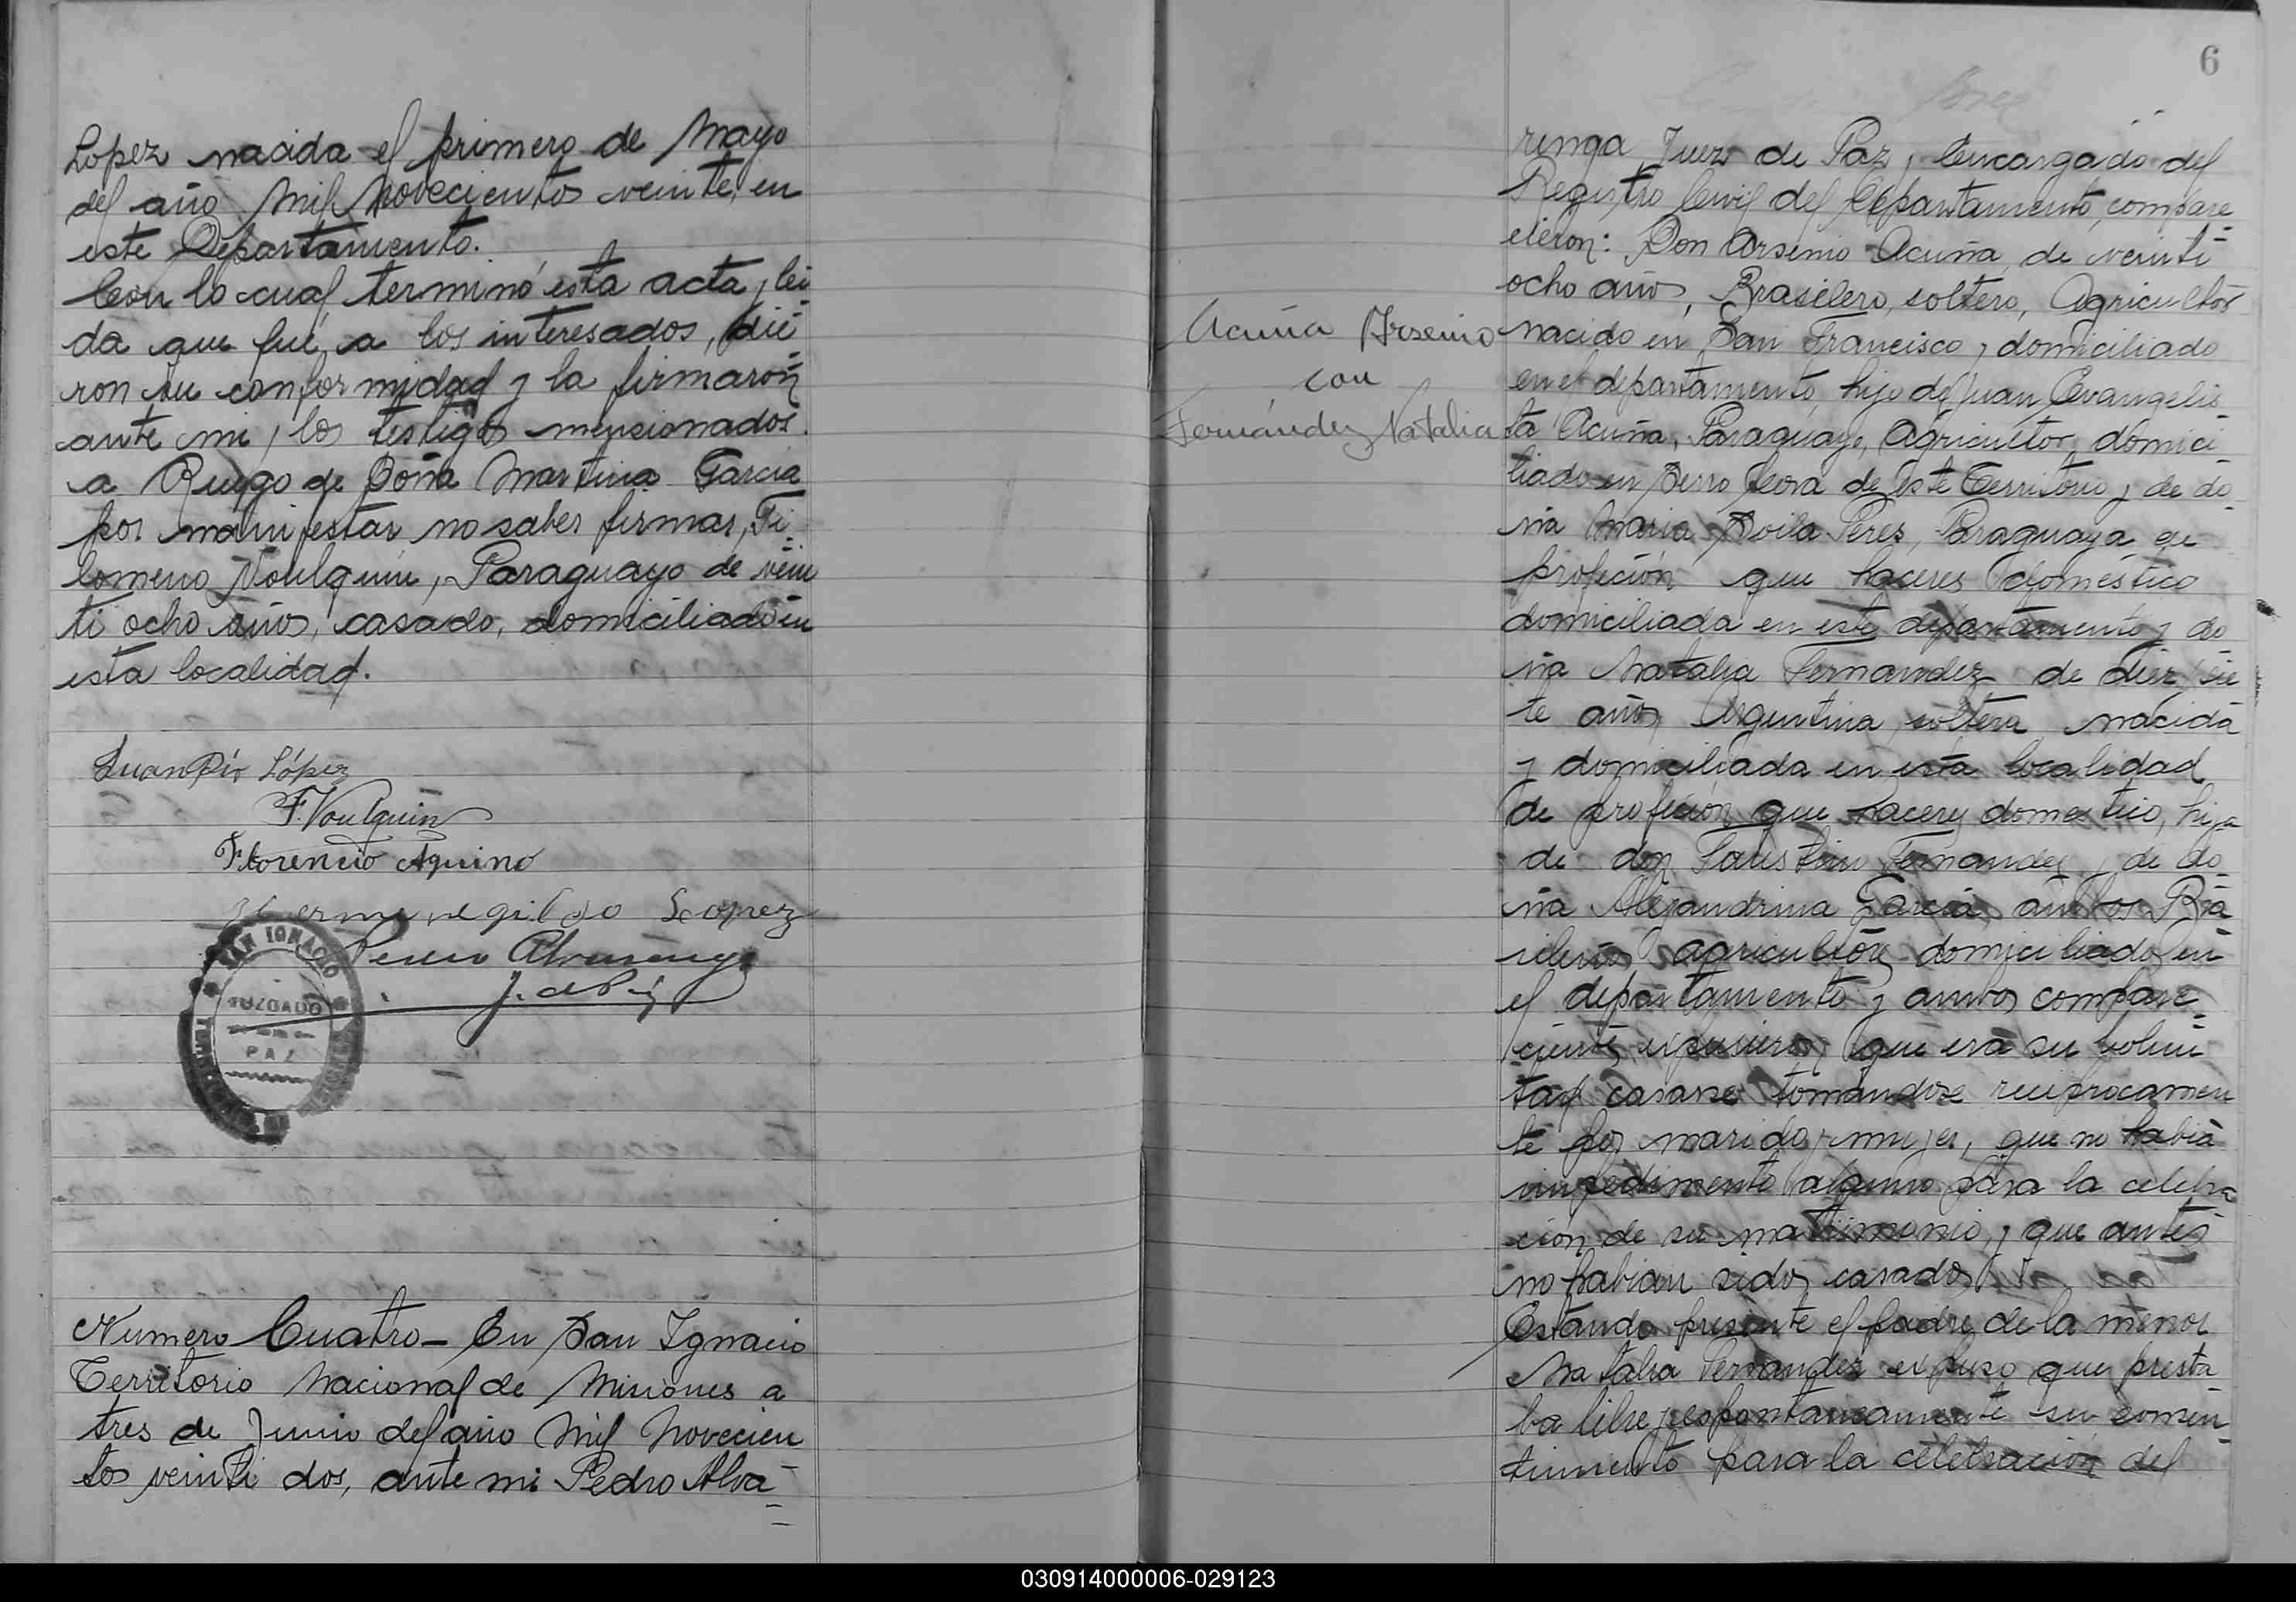 Lopez nacida el primero de Mayo
del año Mil Novecientos veinte, en
este Departamento.
Con lo cual terminó esta acta, lei
da que fué, a los interesados, die
ron su conformidad y la firmaron
ante mi, los testigos mensionados.
a Ruego de Doña Martina Garcia
por manifestar no saber firmar, Fi
lomeno Voulquin, Paraguayo de vein
ti ocho años, casado, domiciliado en
esta localidad.
Juan Pío López
F. Voulquin
Florencio Aquino
Hermenegildo Lopez
Pedro Alvarenga
J. de Paz
SAN IGNACIO
JUZGADO
PAZ
Numero Cuatro - En San Ignacio
Territorio Nacional de Misiones a
tres de Junio del año Mil Novecien
tos veinti dos, ante mi Pedro Alva
6
renga Juez de Paz, Encargado del
Registro Civil del Departamento, compare
cieron: Don Arsenio Acuña, de veinti
ocho años, Brasilero, soltero, Agricultor
nacido en San Francisco, domiciliado
en el departamento, hijo de Juan Evangelis
ta Acuña, Paraguayo, Agricultor, domici
liado en Cerro Corá de este Territorio, de do
ña Maria Avila Peres, Paraguaya, de
profeción que haceres domestico
domiciliada en este departamento y do
ña Natalia Fernandez de diez sie
te años, Argentina, soltera, nacida
y domiciliada en esta localidad
de profeción que haceres domestico, hija
de don Faustino Fernandez, de do
ña Alejandrina Garcia, ambos Bra
sileros, agricultores domiciliados en
el departamento y ambos compare
cientes expusieron que era su volun
tad casarse tomandose reciprocamen
te por marido y mujer, que no habia
impedimento alguno para la celebra
ción de su matrimonio, y que antes
no habian sidos casados.
Estando presente el padre de la menor
Natalia Fernandez expuso que presta
ba libre, espontaneamente su consen
timiento para la celebración del
Acuña Arsenio
con
Fernández Natalia
030914000006-029123